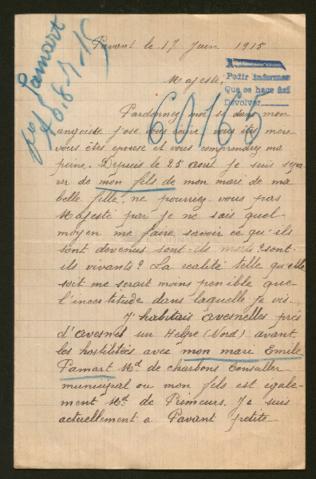 Pavant le 17 Juin 1915
Pamart
60165
Pedir informes
Que se hace así
Devolver
Majesté,
Pardonnez moi si dans mon
angoisse j'ose vous écrire vous êtes mère
vous êtes épouse et vous comprenez ma
peine. Depuis le 25 août je suis sépa
rée de mon fils de mon mari de ma
belle fille, ne pourriez vous pas
Majesté par je ne sais quel
moyen me faire savoir ce qu'ils
sont devenus sont ils morts? sont
ils vivants? La réalité telle qu'elle
soit me serait moins pénible que
l'incertitude dans laquelle je vis.
J'habitais Avesnelles près
d'Avesnes sur Helpe (Nord) avant
les hostilités avec mon mari Emile
Pamart Md de charbons Conseiller
municipal ou mon fils est égale
ment Md de Primeurs. Je suis
actuellement à Pavant petite